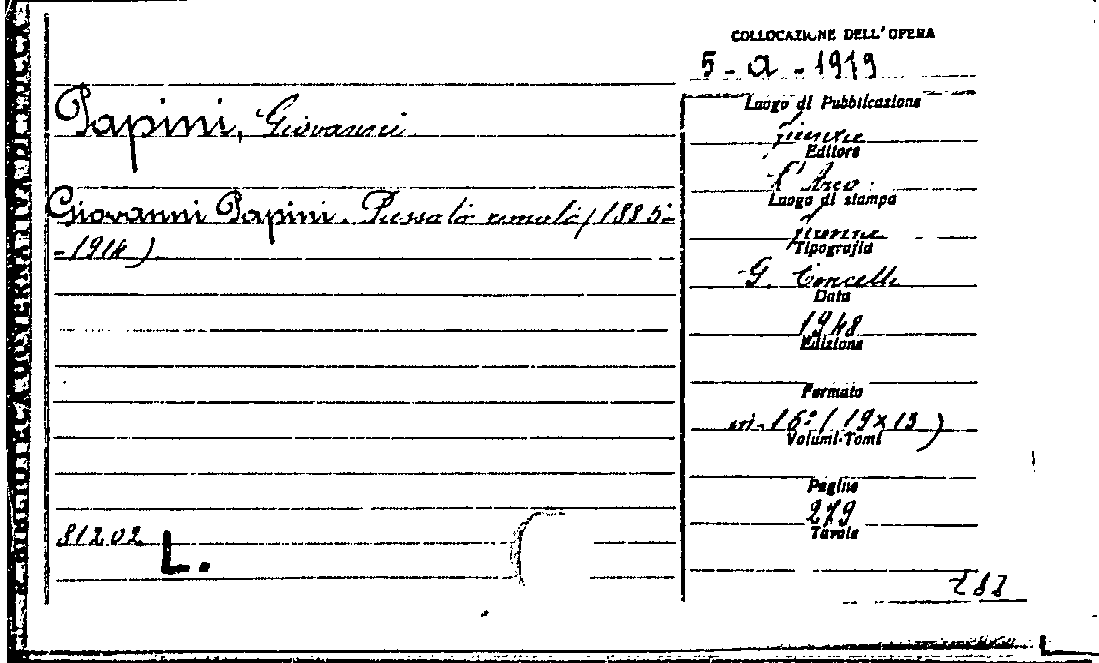 COLLOCAZIONE DELL'OPERA
5 - a - 1919
Papini, Giovanni
Giovanni Papini. Passato remoto (1885-
-1914)
81202 L.
Luogo di Pubblicazione
Firenze
Editore
L'Arco
Luogo di stampa
Firenze
Tipografia
G. Concelli
Data
1948
Edizione
Formato
in-16° (19x13)
Volumi-Tomi
Pagine
279
Tavole